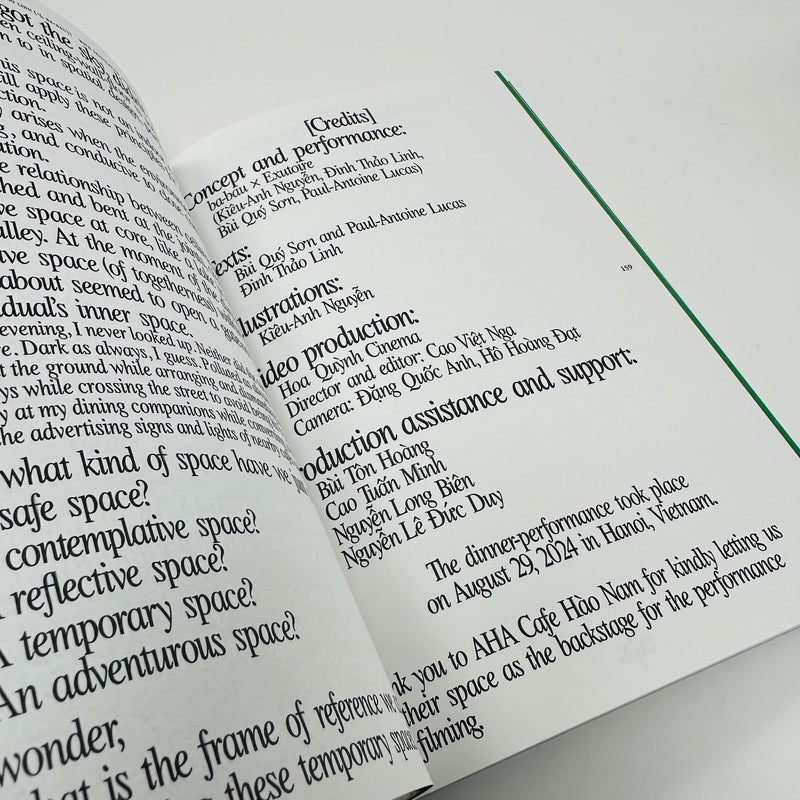 got the sky,
en ceiling-wall
n to in spatial design
his space is not an
will apply these
ction.
y arises when the
g, and conducive to
ation.
e relationship between
hed and bent at the
ve space at core, like a
alley. At the moment of the
ave space (of togetherness
about seemed to open a
dual's inner space.
evening, I never looked up. Neither did
re. Dark as always, I guess. Polluted as
t the ground while arranging and
ys while crossing the street to avoid being
y at my dining companions while
he advertising signs and lights of nearby
what kind of space have we
safe space?
contemplative space?
reflective space?
A temporary space?
An adventurous space?
wonder,
hat is the frame of reference we
these temporary space
[Credits]
Concept and performance:
ba-bau × Exutoire
(Kiêu-Anh Nguyễn, Đinh Thảo Linh,
Bùi Quý Sơn, Paul-Antoine Lucas)
exts:
Bùi Quý Sơn and Paul-Antoine Lucas
Đinh Thảo Linh
lustrations:
Kiêu-Anh Nguyễn
ideo production:
Hoa Quỳnh Cinema
Director and editor: Cao Việt Nga
Camera: Đặng Quốc Anh, Hồ Hoàng Đạt
roduction assistance and support:
Bùi Tôn Hoàng
Cao Tuấn Minh
Nguyễn Long Biên
Nguyễn Lê Đức Duy
The dinner-performance took place
on August 29, 2024 in Hanoi, Vietnam.
nk you to AHA Cafe Hào Nam for kindly letting us
their space as the backstage for the performance
filming.
159